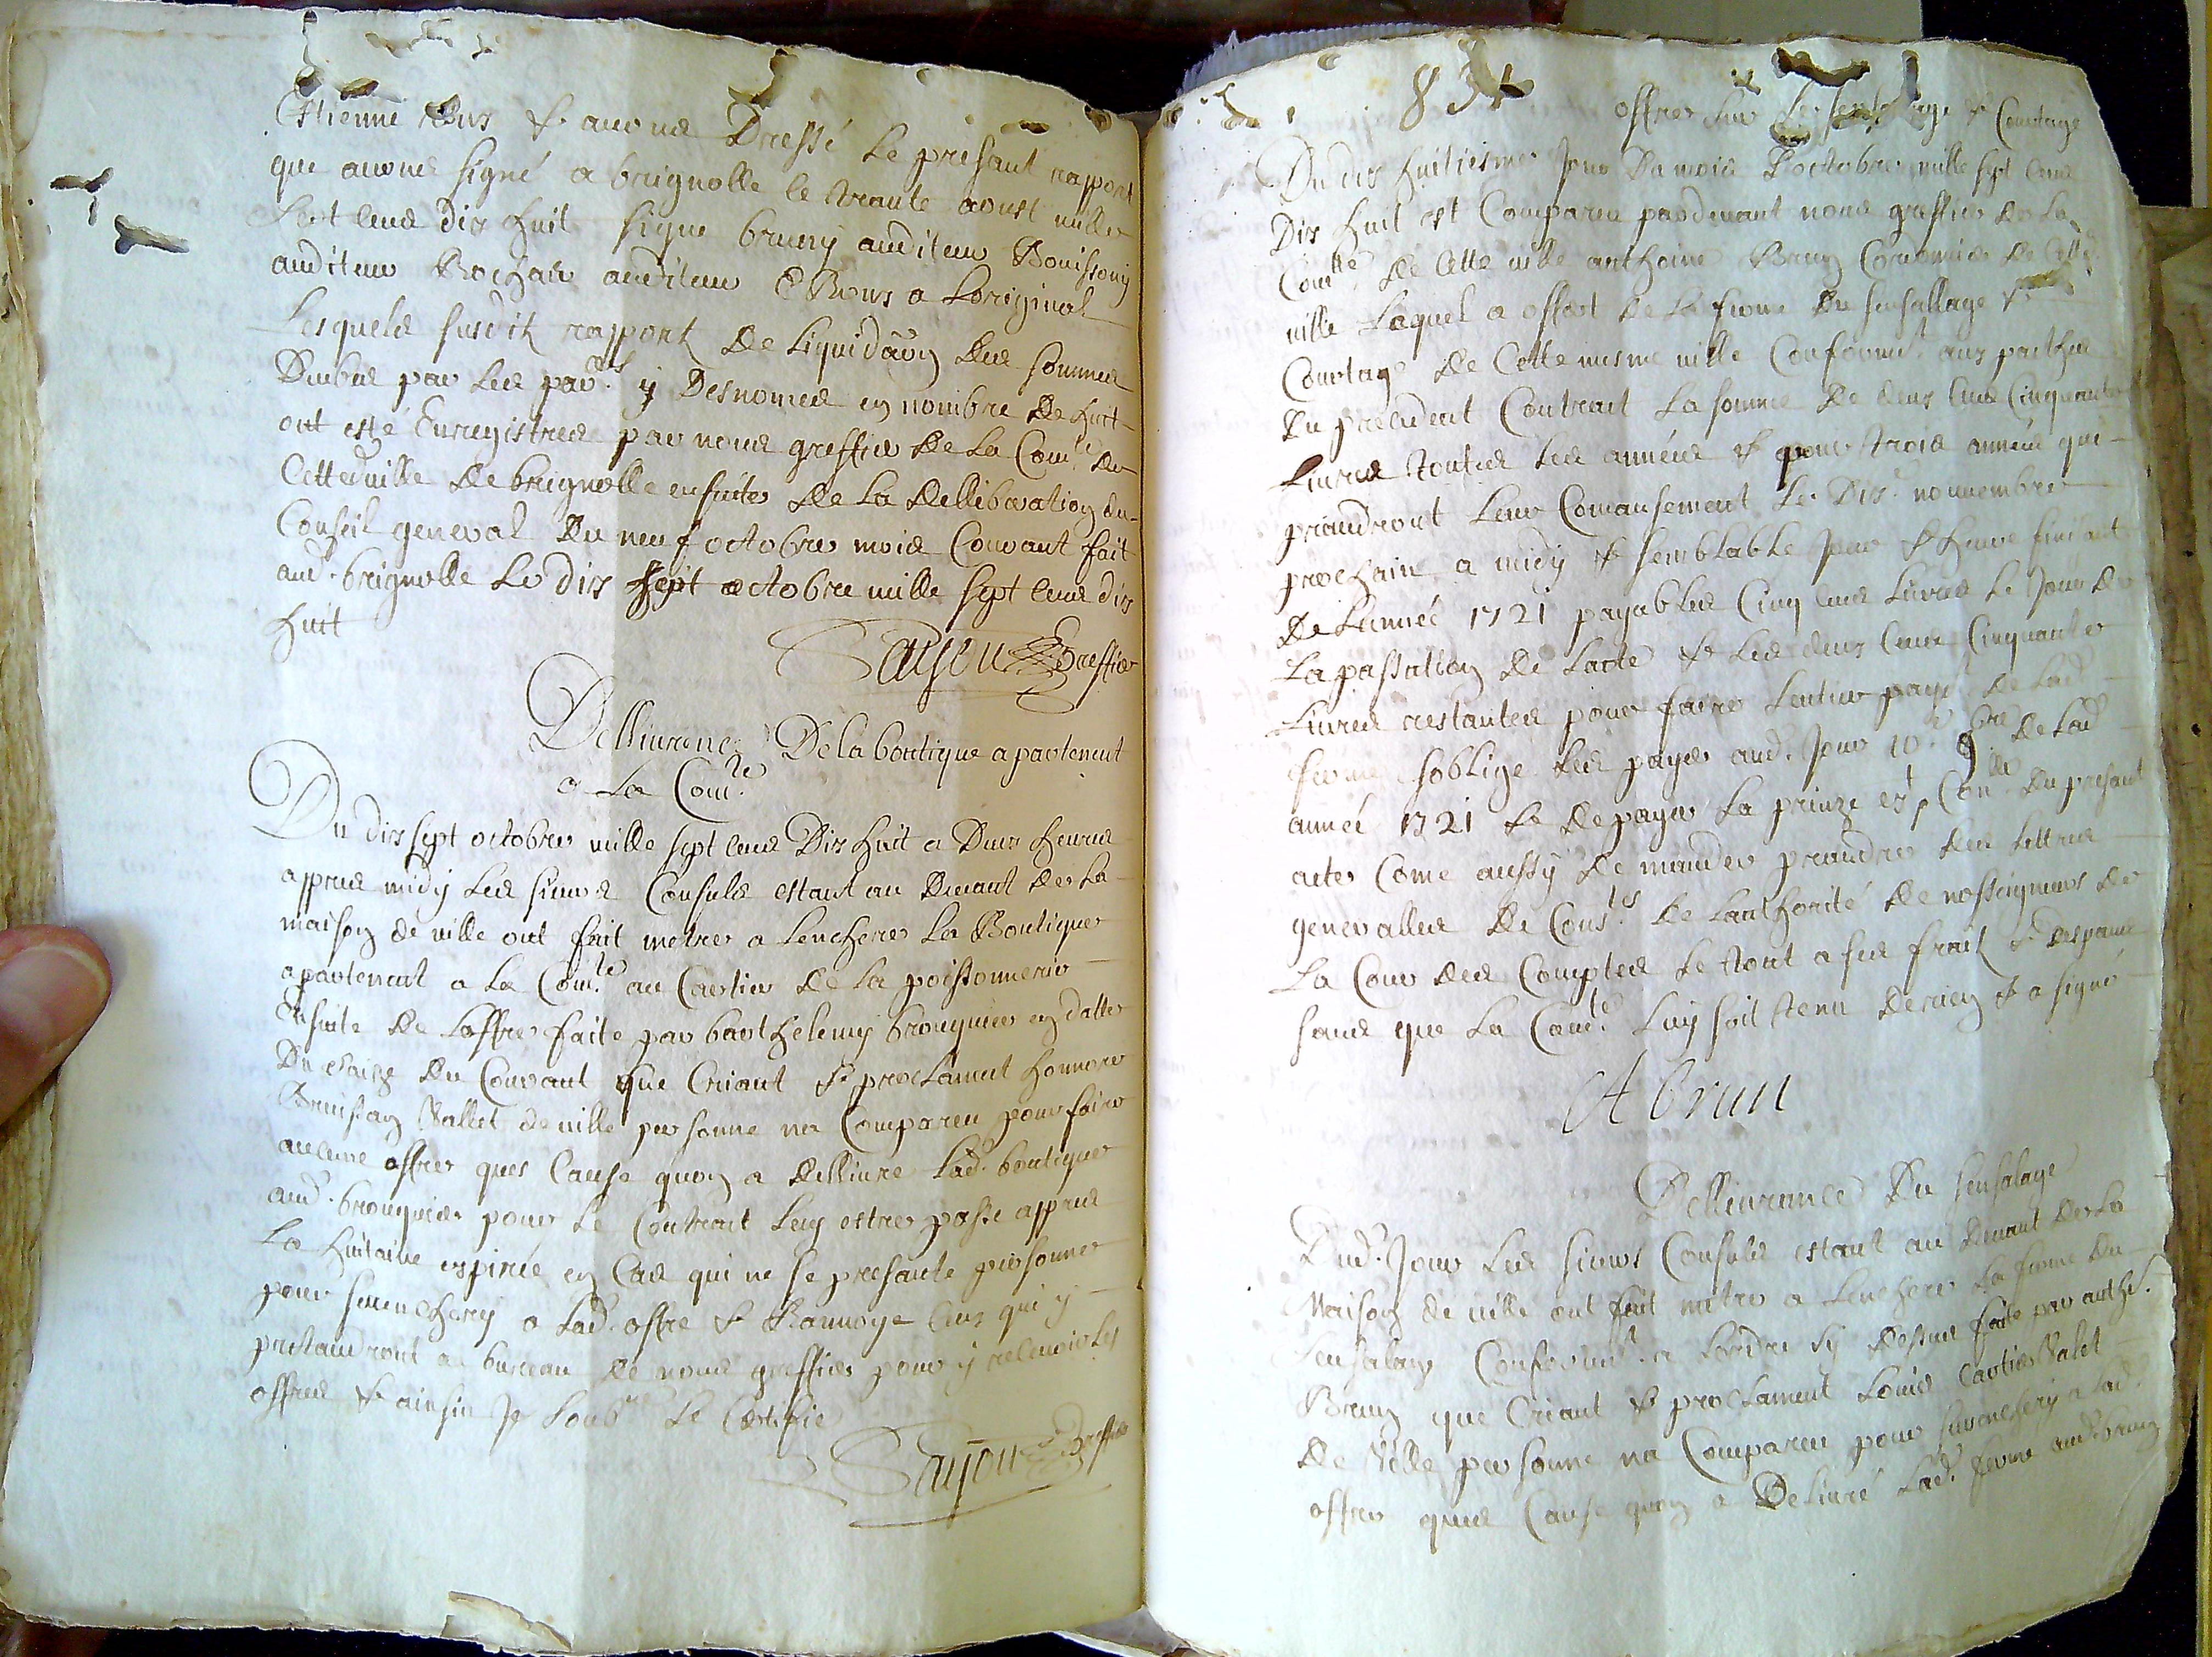 Estienne Bus & avons Dressé le presant rapport
que avons signé a brignolle le trante aoust mille
sept cens dix huit signe bruny auditeur Bouissony
auditeur Rochair auditeur E Bous a Loriginal
Lesquels susdit rapport de Liquidãon des sommes
Deubes par les par.rs y Desnomes en nombre de huit
ont esté Enregistrees par nous greffier de La Com.té de
Cette ville de brignolle ensuite de La Delliberation du
Conseil general du neuf octobre mois Courant fait
aud. brignolle Le dix sept octobre mille sept cens dix
huit
greffier
Dellivrance De la boutique apartenent
a La Com.té
Du dix sept octobre mille sept cens Dix huit a Deux heures
appres midy les sieurs Consuls estant au Devant de La
maison de ville ont fait metre a Lenchere La Boutique
apartenent a La Com.té au Cartier de La poissonnerie
Ensuite de Loffre faite par barthelemy brouquier en datte
Du du Courant que Criant & proclament honnore
Vallet de ville personne na Comparu pour faire
aucune offre ques Cause quon a dellivre Lad. boutique
aud. brouquier pour Le Contrait luy estre passé appres
La huitaine expirée en Cas qui ne se presante personne
pour surenchery a Lad. offre & Ranvoye Ceux qui y
pretandront au bureau de nous greffier pour y recevoir les
offres & ainsin Je soub.né Le Certifie
greffier
83
offre sur Le sensalage & Courtage
Du dix huitiesme Jour Du mois Doctobre mille sept cens
Dix huit est Comparu pardevant nous greffier de La
Com.té de Cette ville anthoine Brun Cordonnier de Cette
ville Laquel a offert de La ferme du sensallage &
Courtage de Cette mesme ville Conformt. aux pacthes
du precedent Contrait La somme de deux cens Cinquante
Livres toutes les années & pour trois années qui
prandront leur Comansement Le Dix novembre
prochain a midy & semblable Jour & heure finisant
de Lannée 1721 payables Cinq cens Livres le Jour de
La passation de Lacte & les deux cens Cinquante
Livres restantes pour faire Lentier payt. de Lad.
ferme soblige les payer aud. Jour 10.e 9bre de Lad.
année 1721 & de payer La prinze et Con.lle du presant
acte Come aussy de mander prandre des lettres
generalles de Cons.tes de Lauthorité de nosseigneurs de
La Cour des Comptes Le tout a ses frait & despans
sans que La Com.té Luy soit tenu de rien & a signé
A brun
Dellivrance Du sensalage
Dud. Jour les sieurs Consuls estant au Devant de La
Maison de ville ont fait metre a Lenchere La ferme du
sensalage Conformt. a Loffre sy dessus faite par anthe.
Brun que Criant & proclament Louis Cartier Valet
de Ville personne na Comparu pour surenchery a Lad.
offre ques Cause quon a Delivré Lad. ferme aud. brun